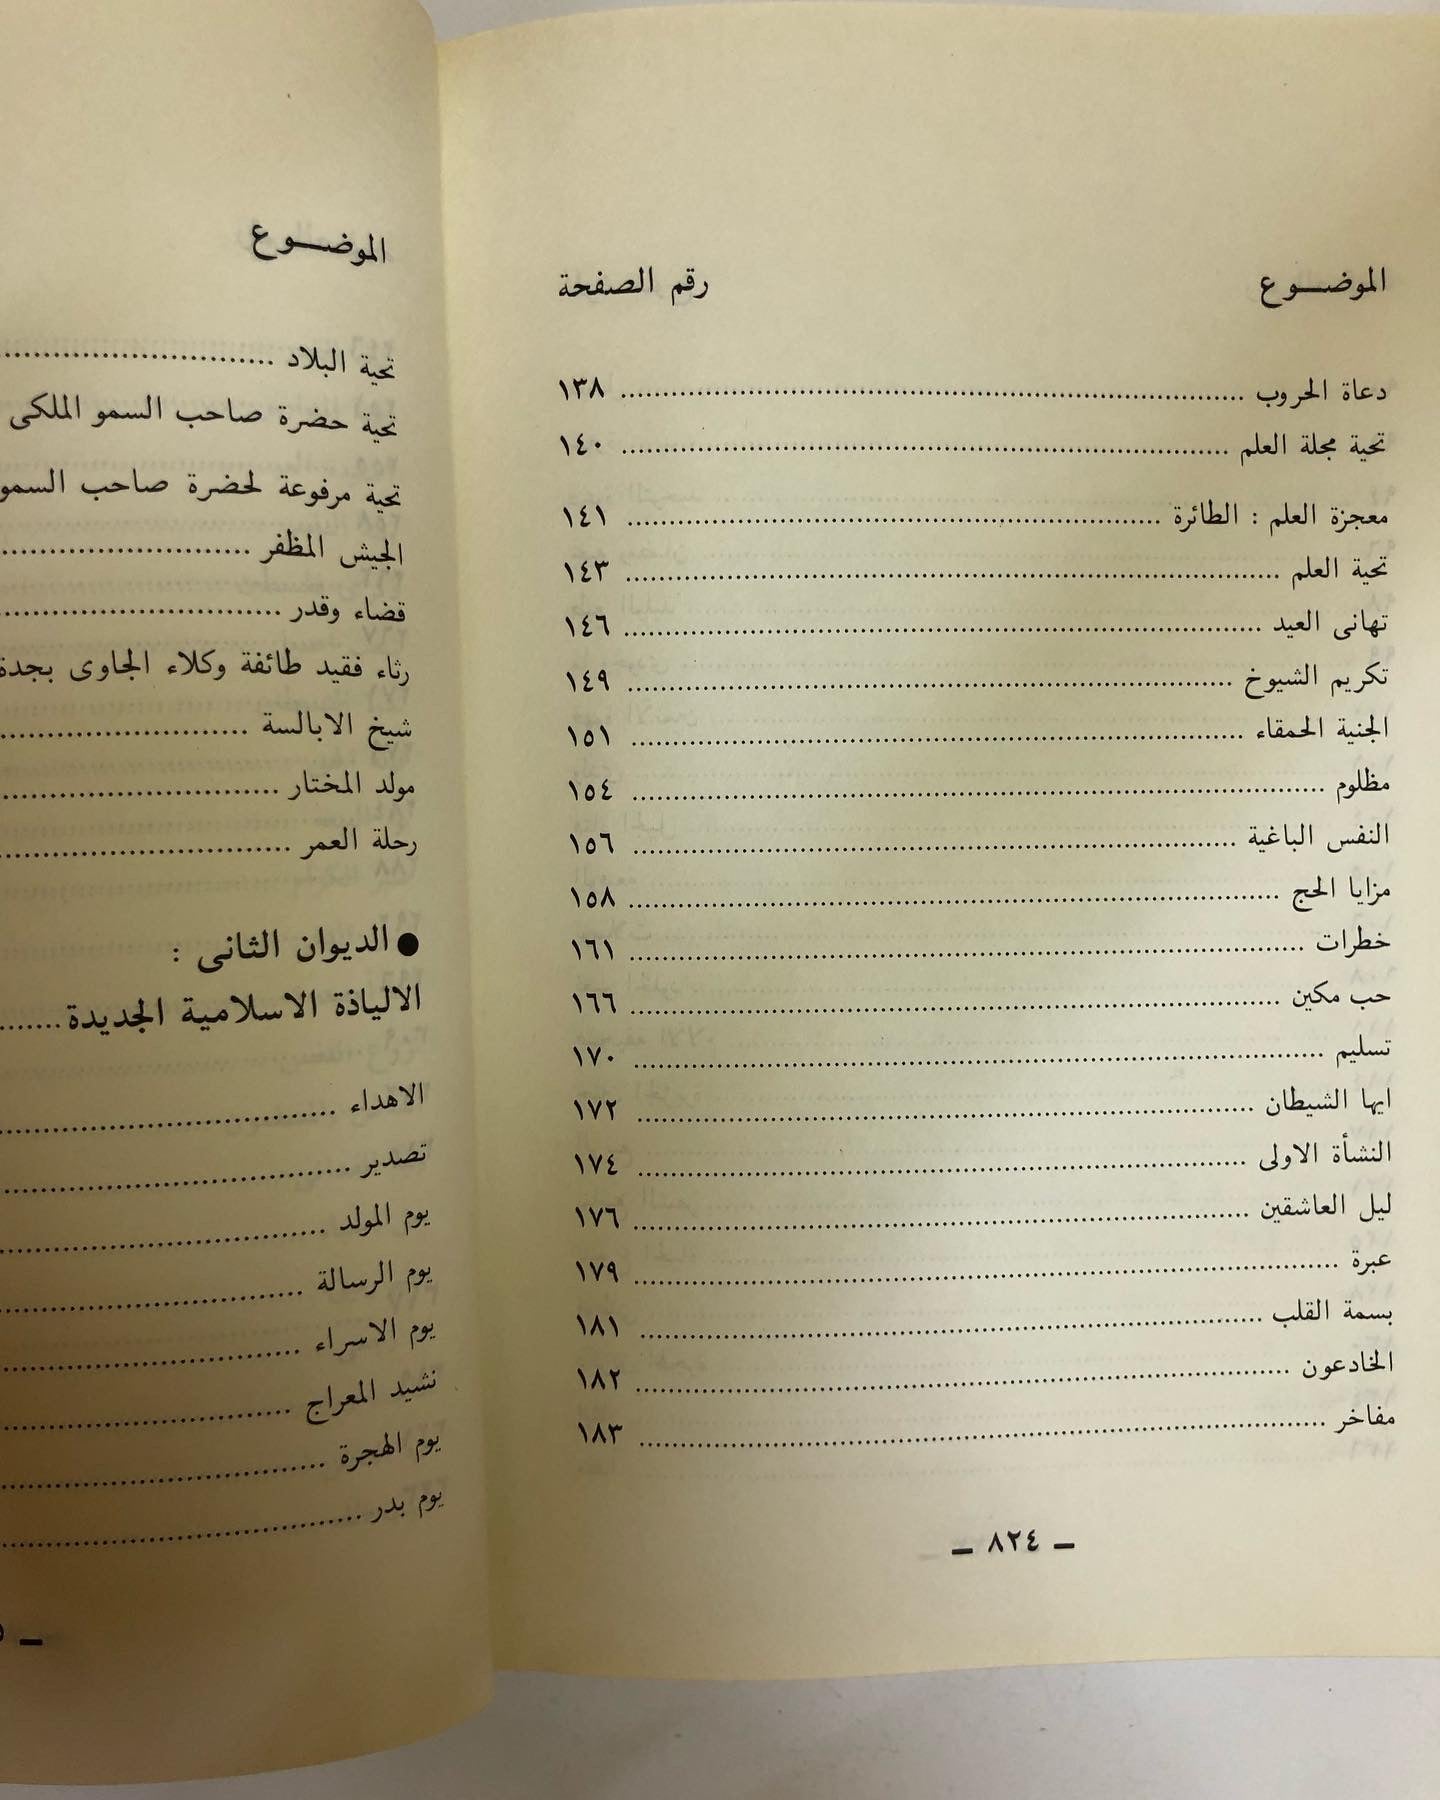 الموضـــوع رقم الصفحة
دعاة الحروب ........ ١٣٨
تحية مجلة العلم ........ ١٤٠
معجزة العلم : الطائرة ........ ١٤١
تحية العلم ........ ١٤٣
تهانى العيد ........ ١٤٦
تكريم الشيوخ ........ ١٤٩
الجنية الحمقاء ........ ١٥١
مظلوم ........ ١٥٤
النفس الباغية ........ ١٥٦
مزايا الحج ........ ١٥٨
خطرات ........ ١٦١
حب مكين ........ ١٦٦
تسليم ........ ١٧٠
ايها الشيطان ........ ١٧٢
النشأة الاولى ........ ١٧٤
ليل العاشقين ........ ١٧٦
عبرة ........ ١٧٩
بسمة القلب ........ ١٨١
الخادعون ........ ١٨٢
مفاخر ........ ١٨٣
ـ ٨٢٤ ـ
الموضـــوع
تحية البلاد ........
تحية حضرة صاحب السمو الملكى
تحية مرفوعة لحضرة صاحب السمو
الجيش المظفر ........
قضاء وقدر ........
رثاء فقيد طائفة وكلاء الجاوى بجدة
شيخ الابالسة ........
مولد المختار ........
رحلة العمر ........
● الديوان الثانى :
الالياذة الاسلامية الجديدة ........
الاهداء ........
تصدير ........
يوم المولد ........
يوم الرسالة ........
يوم الاسراء ........
نشيد المعراج ........
يوم الهجرة ........
يوم بدر ........